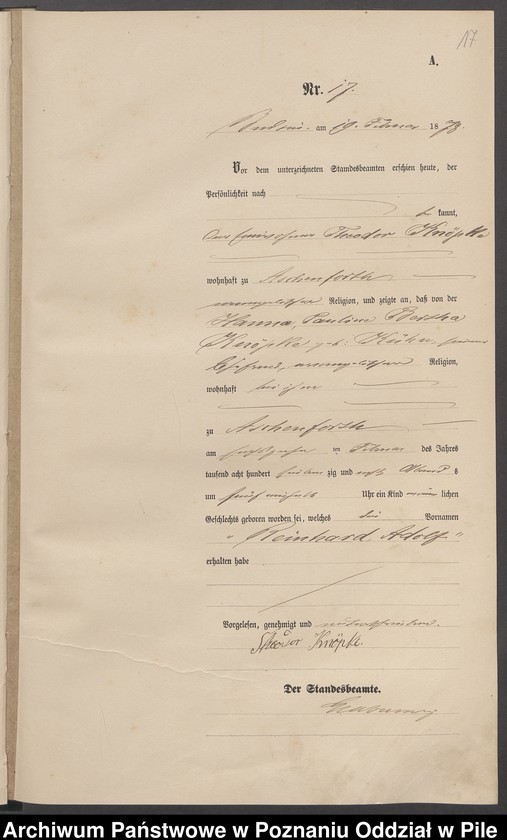 17
A.
Nr. 17.
am 19. Februar 1878.
Vor dem unterzeichneten Standesbeamten erschien heute, der
Persönlichkeit nach
be kannt,
der Theodor Knöpke
wohnhaft zu Aschenforth
evangelischer Religion, und zeigte an, daß von der
Hanna, Pauline Bertha
Knöpke geb. Kühn, seiner
Ehefrau, evangelischer Religion,
wohnhaft bei ihm
zu Aschenforth
am sechszehn ten Februar des Jahres
tausend acht hundert sieben zig und acht Abend s
um fünf einhalb Uhr ein Kind männ lichen
Geschlechts geboren worden sei, welches die Vornamen
„Reinhard, Adolf“
erhalten habe
Vorgelesen, genehmigt und unterschrieben.
Theodor Knöpke.
Der Standesbeamte.
Archiwum Państwowe w Poznaniu Oddział w Pile